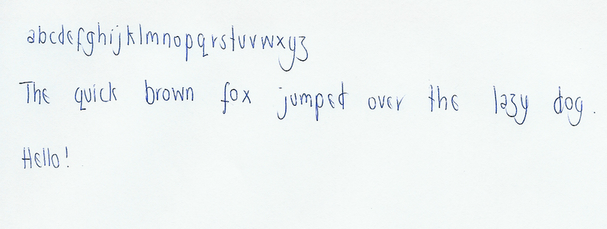 abcdefghijklmnopqrstuvwxyz
The quick brown fox jumped over the lazy dog.
Hello!